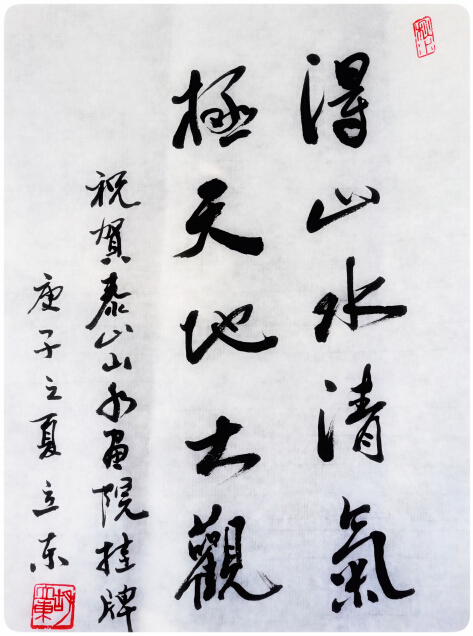 得山水清氣
極天地大觀
祝賀泰山山水画院挂牌
庚子之夏 立东